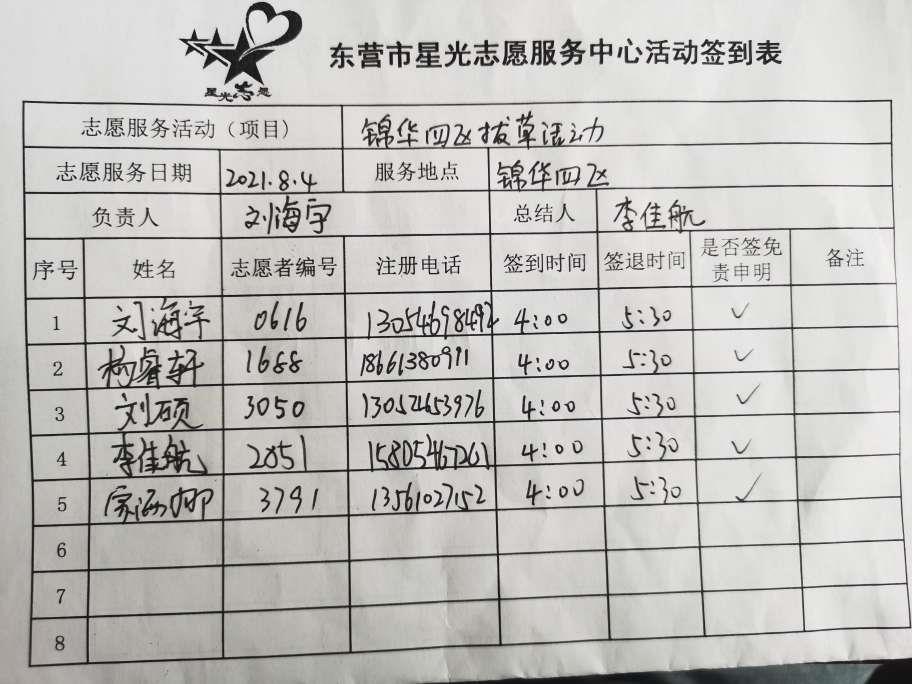 星光志愿
东营市星光志愿服务中心活动签到表
志愿服务活动（项目） 锦华四区拔草活动
志愿服务日期 2021.8.4 服务地点 锦华四区
负责人 刘海宇 总结人 李佳航
序号 姓名 志愿者编号 注册电话 签到时间 签退时间 是否签免责申明 备注
1 刘海宇 0616 13054698492 4:00 5:30 ✓
2 睿轩 1688 18661380911 4:00 5:30 ✓
3 刘硕 3050 13052653976 4:00 5:30 ✓
4 李佳航 2851 15805467261 4:00 5:30 ✓
5 3791 13561027152 4:00 5:30 ✓
6
7
8